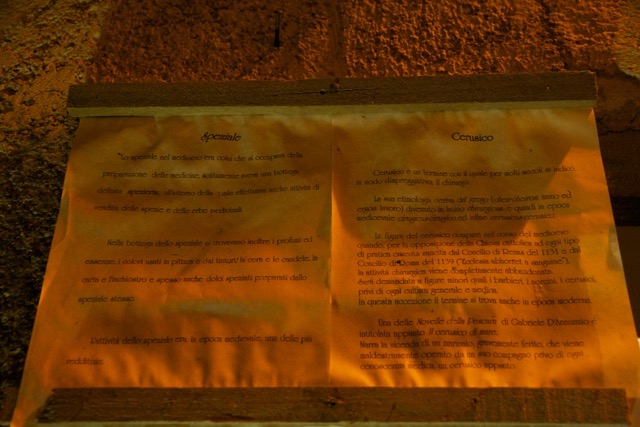 Speziale
"Lo speziale nel medioevo era colui che si occupava della
preparazione delle medicine, solitamente aveva una bottega
definita speziaria, all'interno della quale effettuava anche attività di
vendita delle spezie e delle erbe medicinali.
Nella bottega dello speziale si trovavano inoltre i profumi ed
essenze, i colori usati in pittura e dai tintori, la cera e le candele, la
carta e l'inchiostro e spesso anche dolci speziati preparati dallo
speziale stesso.
L'attività dello speziale era, in epoca medievale, una delle più
redditizie.
Cerusico
Cerusico è un termine con il quale per molti secoli si indicò,
in modo dispregiativo, il chirurgo.
La sua etimologia deriva dal greco
ergon lavoro) divenuto in latino chirurgicus e quindi in epoca
medioevale cirugicus e infine cerusicus cerusico.
La figura del cerusico compare nel corso del medioevo
quando, per la opposizione della Chiesa cattolica ad ogni tipo
di pratica cruenta sancita dal Concilio di Reims del 1131 e dal
Concilio di Roma del 1139 ("Ecclesia abhorret a sanguine"),
la attività chirurgica viene completamente abbandonata.
Sarà demandata a figure minori quali i barbieri, i norcini, i cerusici,
privi di ogni cultura generale e medica.
In questa accezione il termine si trova anche in epoca moderna.
Una delle Novelle della Pescara di Gabriele D'Annunzio è
intitolata appunto Il cerusico di mare.
Narra la vicenda di un marinaio, gravemente ferito, che viene
maldestramente operato da un suo compagno privo di ogni
conoscenza medica, un cerusico appunto.